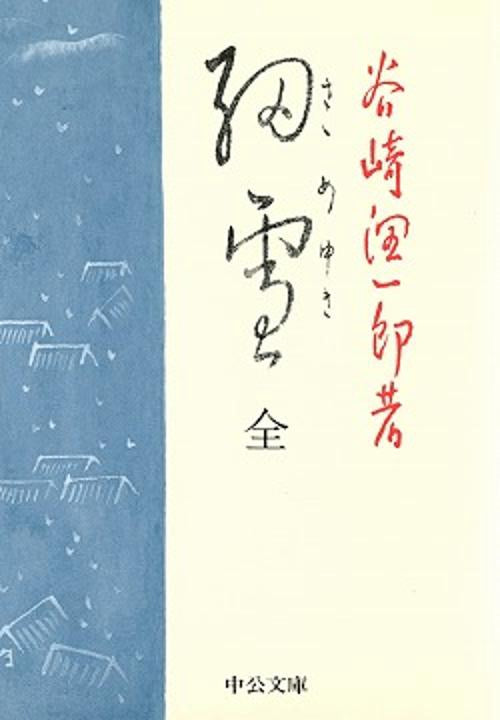 谷崎潤一郎著
細雪
さゝめゆき
全
中公文庫